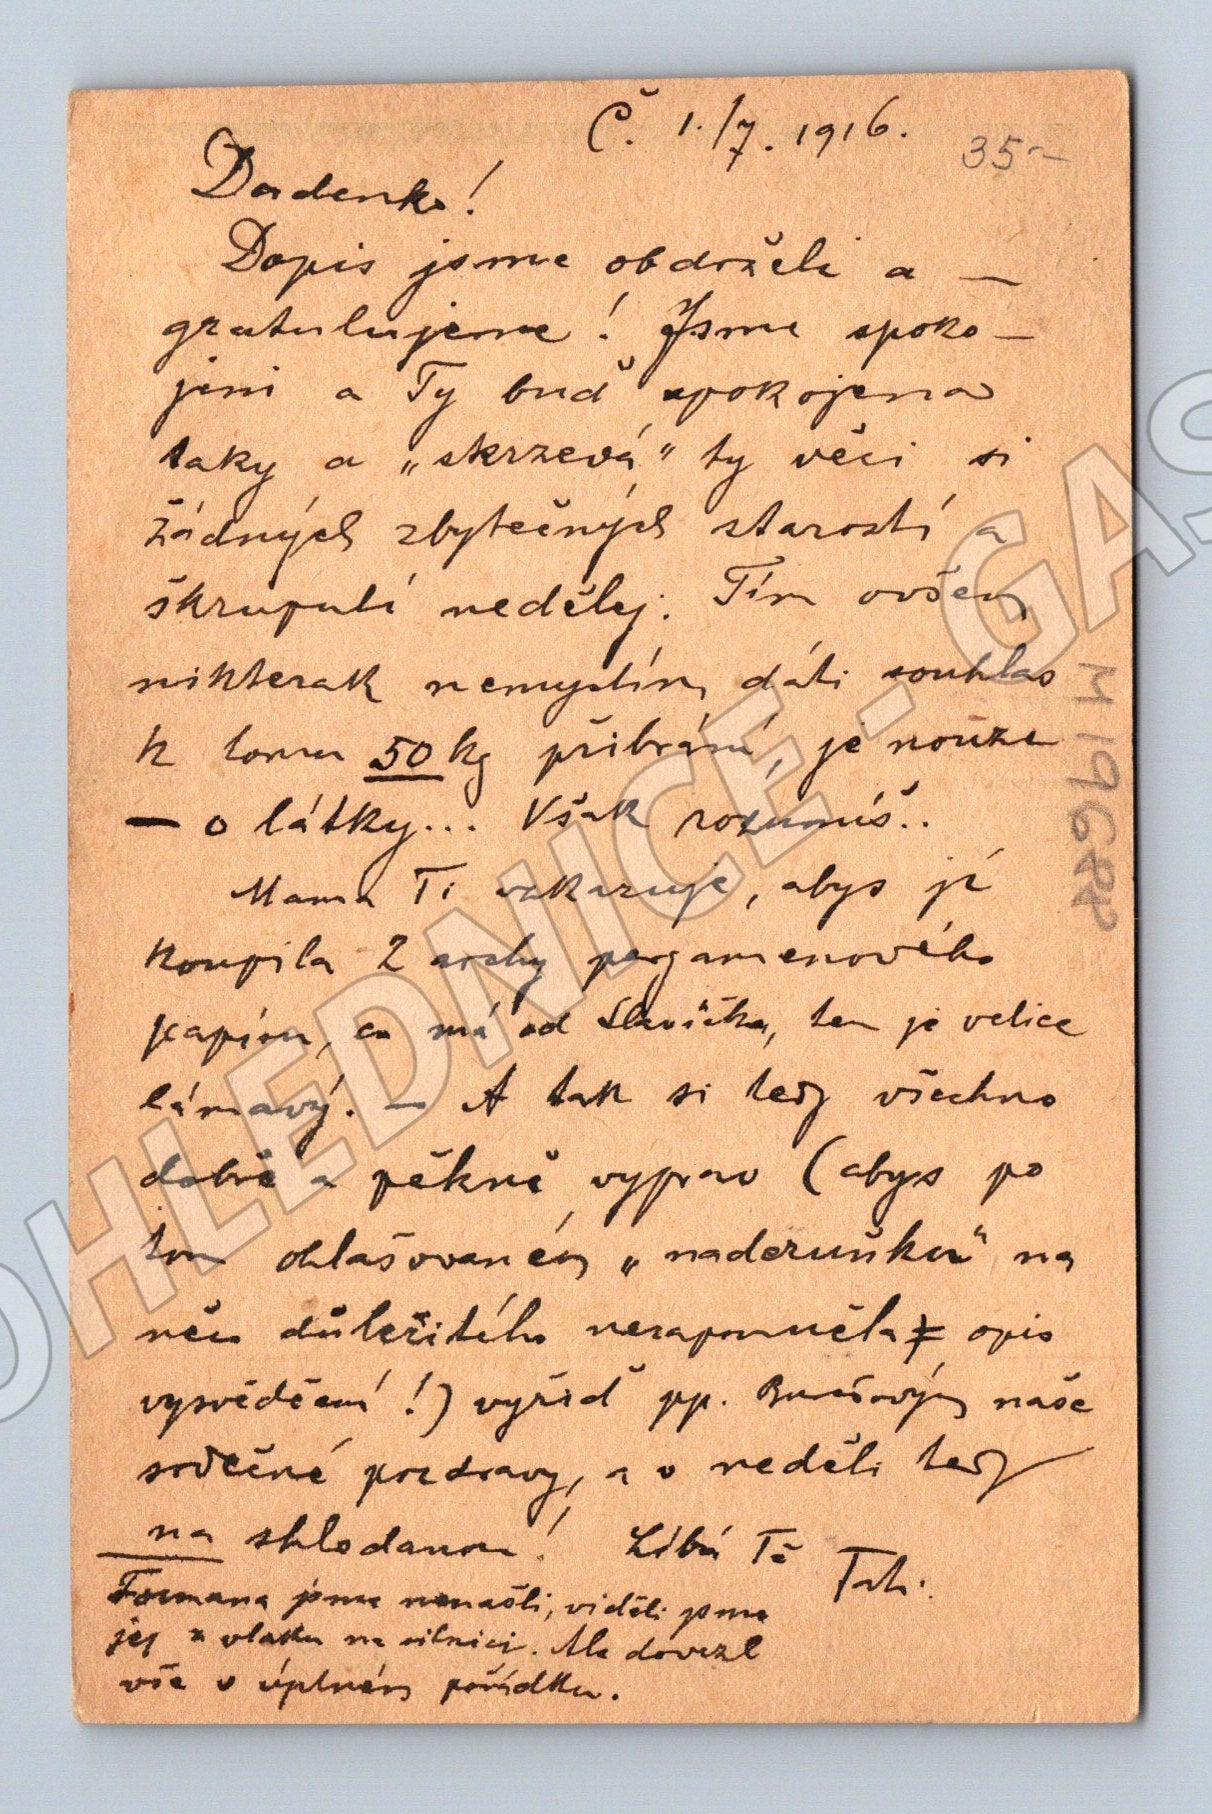 Č. 1./7. 1916.
35~
Dadenko!
Dopis jsme obdrželi a —
gratulujeme! Jsme spoko-
jeni a Ty buď spokojena
taky a „skrzevá“ ty věci si
žádných zbytečných starostí a
škrupulí nedělej. Tím ovšem
nikterak nemyslím dáti souhlas
k tomu 50 kg přibrání, je nouze
— o látky... Však rozumíš..
Mama Ti vzkazuje, abys jí
koupila 2 archy pergamenového
papíru, co má od Slavíčka, ten je velice
lámavý. — A tak si tedy všechno
dobře a pěkně vyprav (abys po
tom ohlašovaném „naderuňku“ na
něco důležitého nezapomněla opis
vysvědčení!) vyřiď pp. naše
srdečné pozdravy, a v neděli tedy
na shledanou! Líbá Tě Tat.
Formana jsme nenašli, viděli jsme
jej z vlaku na silnici. Ale dovezl
vše v úplném pořádku.
M19688
POHLEDNICE - GAS